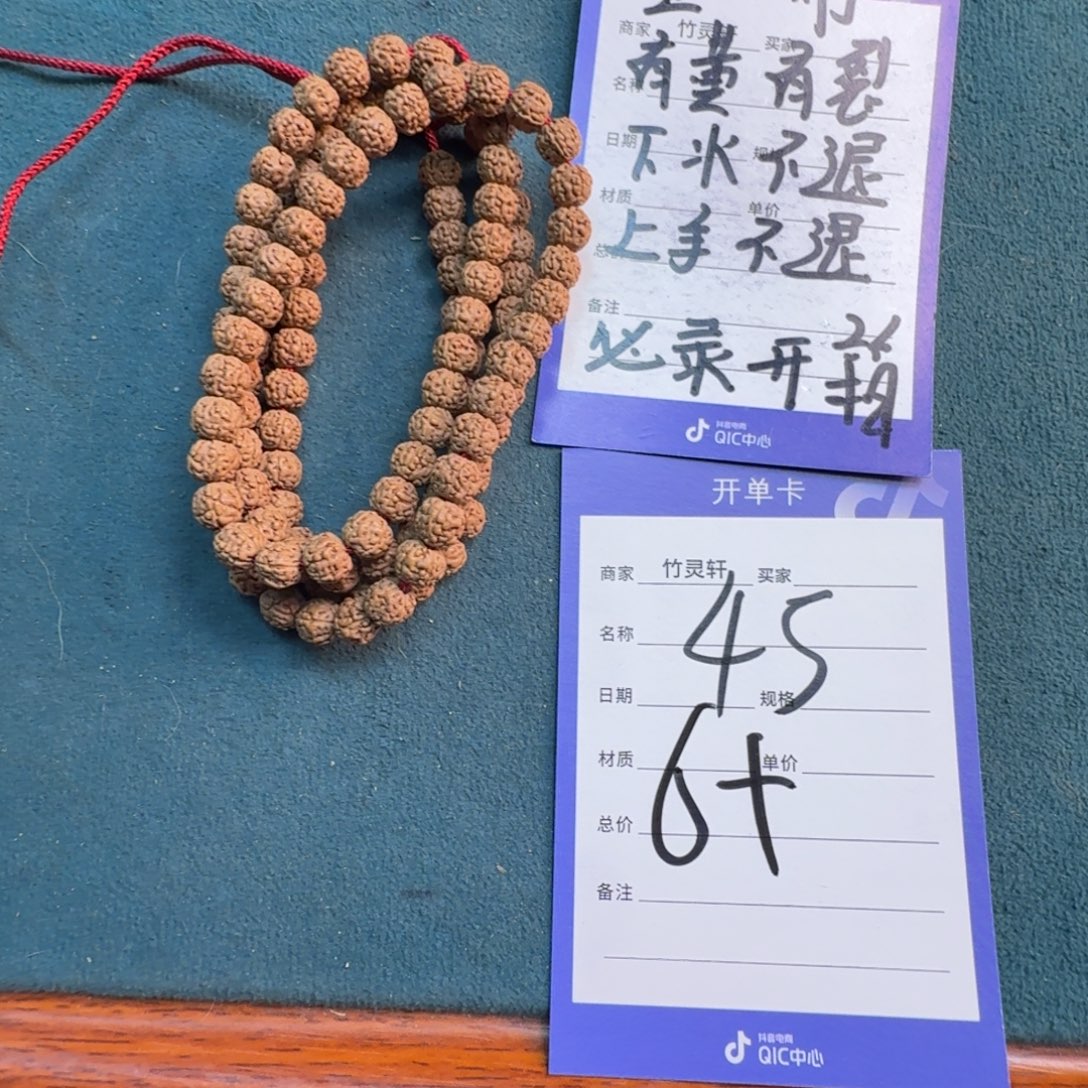 商家 竹灵轩 买家
有董有裂
名称
日期 规格
下水不退
材质 单价
上手不退
备注
必录开箱
抖音电商
QIC中心
开单卡
商家 竹灵轩 买家
名称
45
日期 规格
材质 单价
6+
总价
备注
抖音电商
QIC中心